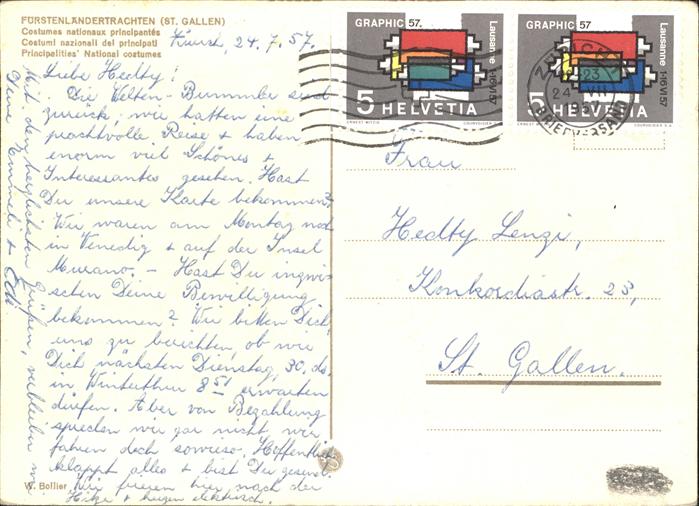 FÜRSTENLÄNDERTRACHTEN (ST. GALLEN)
Costumes nationaux principautés
Costumi nazionali dei principati
Principalities' National costumes
Zürich, 24.7.57.
Liebe Hedty!
Die Velten-Bummler sind
zurück; wir hatten eine
prachtvolle Reise & haben
enorm viel Schönes &
Interessantes gesehen. Hast
Du unsere Karte bekommen?
Wir waren am Montag noch
in Venedig & auf der Insel
Murano. – Hast Du inzwi-
schen Deine Bewilligung
bekommen? Wir bitten Dich,
uns zu berichten, ob wir
Dich nächsten Dienstag, 30. ds.
in Winterthur 8 51 erwarten
dürfen. Aber von Bezahlung
sprechen wir gar nicht, wir
fahren doch sowieso. Hoffentlich
klappt alles & bist Du gesund.
Wir frieren hier nach der
Hitze & heizen elektrisch.
Mit den herzlichsten Grüßen, verbleiben wir
Deine Emmeli &
W. Bollier
GRAPHIC 57.
Lausanne 1-16 VI 57
5 HELVETIA
ERNST WITZIG COURVOISIER S.A.
GRAPHIC 57
Lausanne 1-16 VI 57
5 HELVETIA
ERNST WITZIG COURVOISIER S.A.
ZÜRICH
23
24 VII
1957
BRIEFVERSAND
Frau
Hedty Lenzi,
Konkordiastr. 23,
St. Gallen.